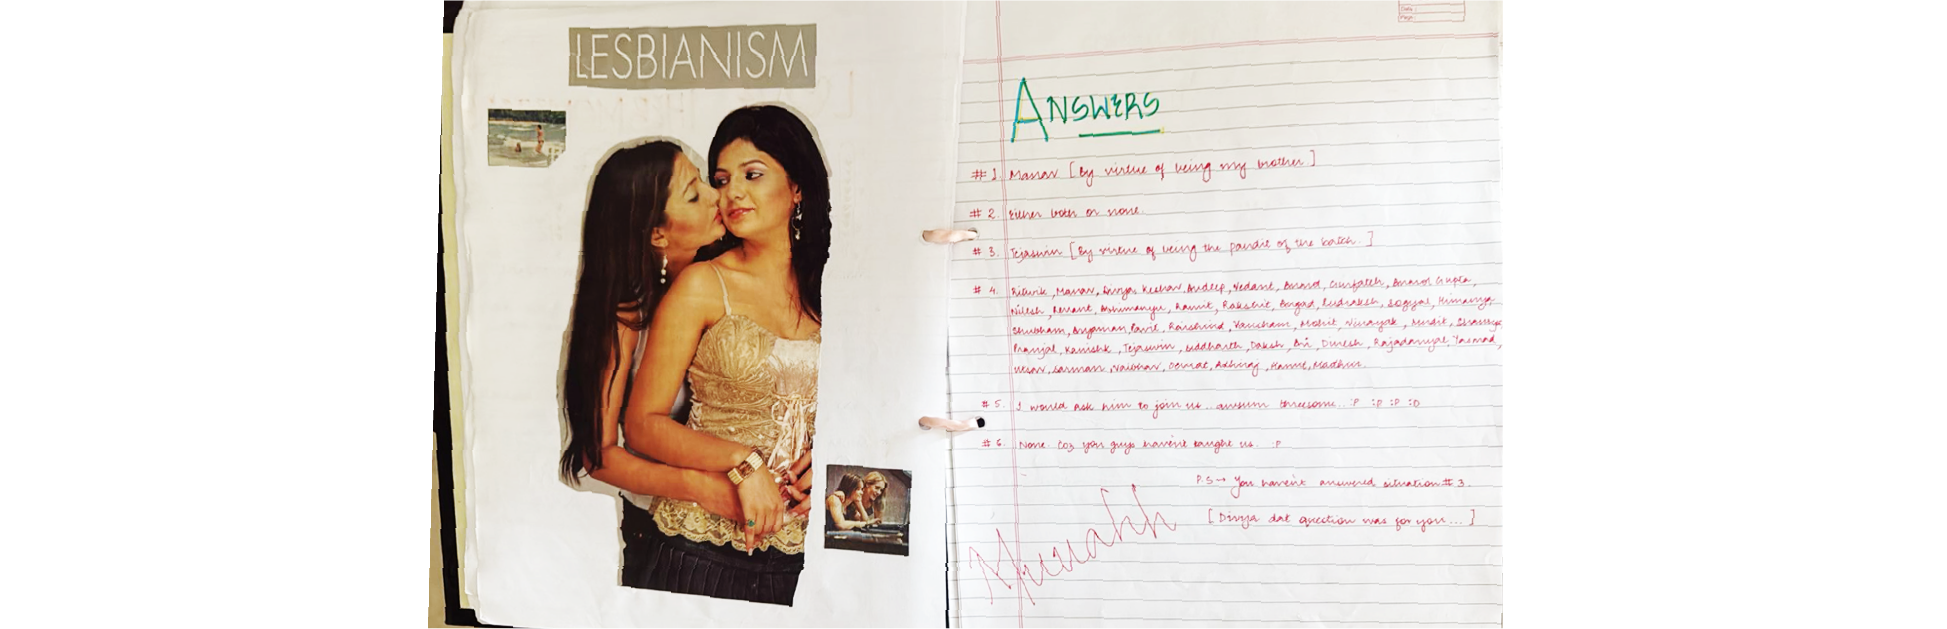 LESBIANISM
Date :
Page :
ANSWERS
# 1. Manav [By virtue of being my brother.]
# 2. Either both or none.
# 3. Tejaswin [By virtue of being the pandit of the batch.]
# 4. Ritwik, Manav, Divya, Keshav, Andeep, Vedant, Anand, Gurfateh, Anmol Gupta,
Nilesh, Revant, Abhimanyu, Ramit, Rakshit, Angad, Rudraksh, Sogyal, Himanya
Shubham, Angaman, Pavit, Vausham, Mohit, Vinayak, Mudit, Shaurya
Pranjal, Kanishk, Tejaswin, Siddharth, Daksh, Om, Divesh, Rajadanyal,
Sarman, Vaibhav, Devrat, Madhur.
# 5. I would ask him to join us.. awsum threesome.. :P :D :P :D
# 6. None. Coz you guys haven't taught us. :P
P.S → You haven't answered situation # 3.
[Divya dat question was for you...]
Muuahh